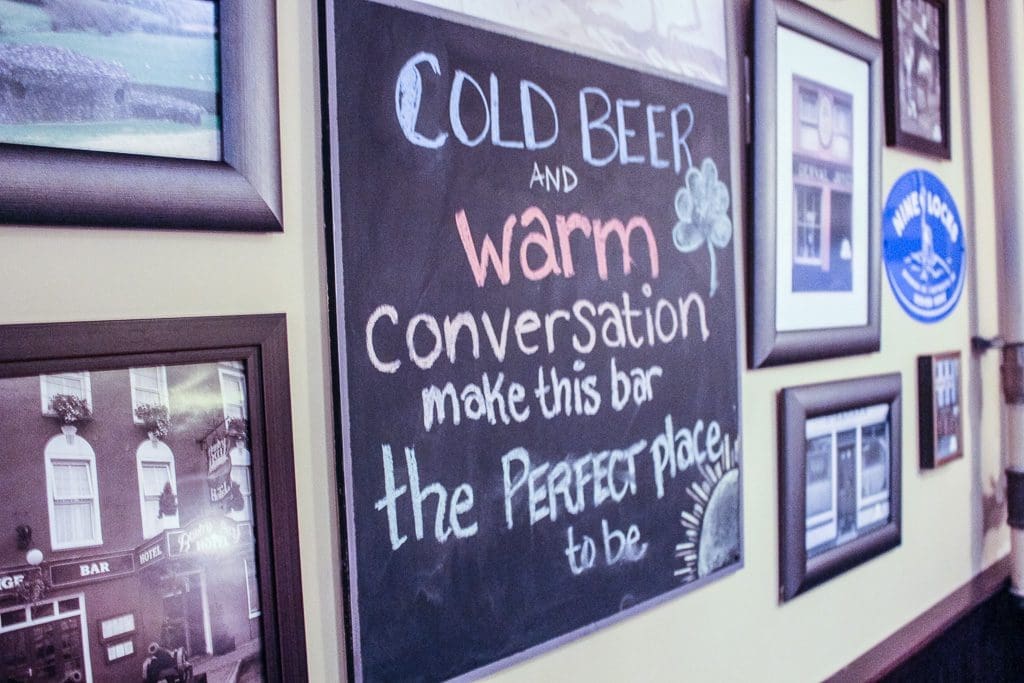 COLD BEER
AND
warm
Conversation
make this bar
the PERFECT place
to be
NINE LOCKS
BAR
HOTEL
HOTEL